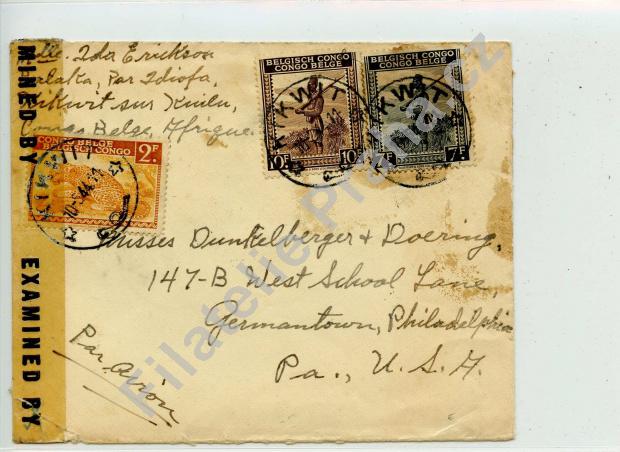 Mlle. Ida Erickson
Balaka, par Idiofa,
Kikwit sur Kwilu,
Congo Belge, Afrique
BELGISCH CONGO
CONGO BELGE
10F 10F
BELGISCH CONGO
CONGO BELGE
7F
KIKWIT
KIKWIT
CONGO BELGE
BELGISCH CONGO
2F
KIKWIT
MINED BY
EXAMINED BY
Misses Dunkelberger & Doering,
147-B West School Lane,
Germantown, Philadelphia
Pa., U.S.A.
Par avion
Filatelie Praha.cz